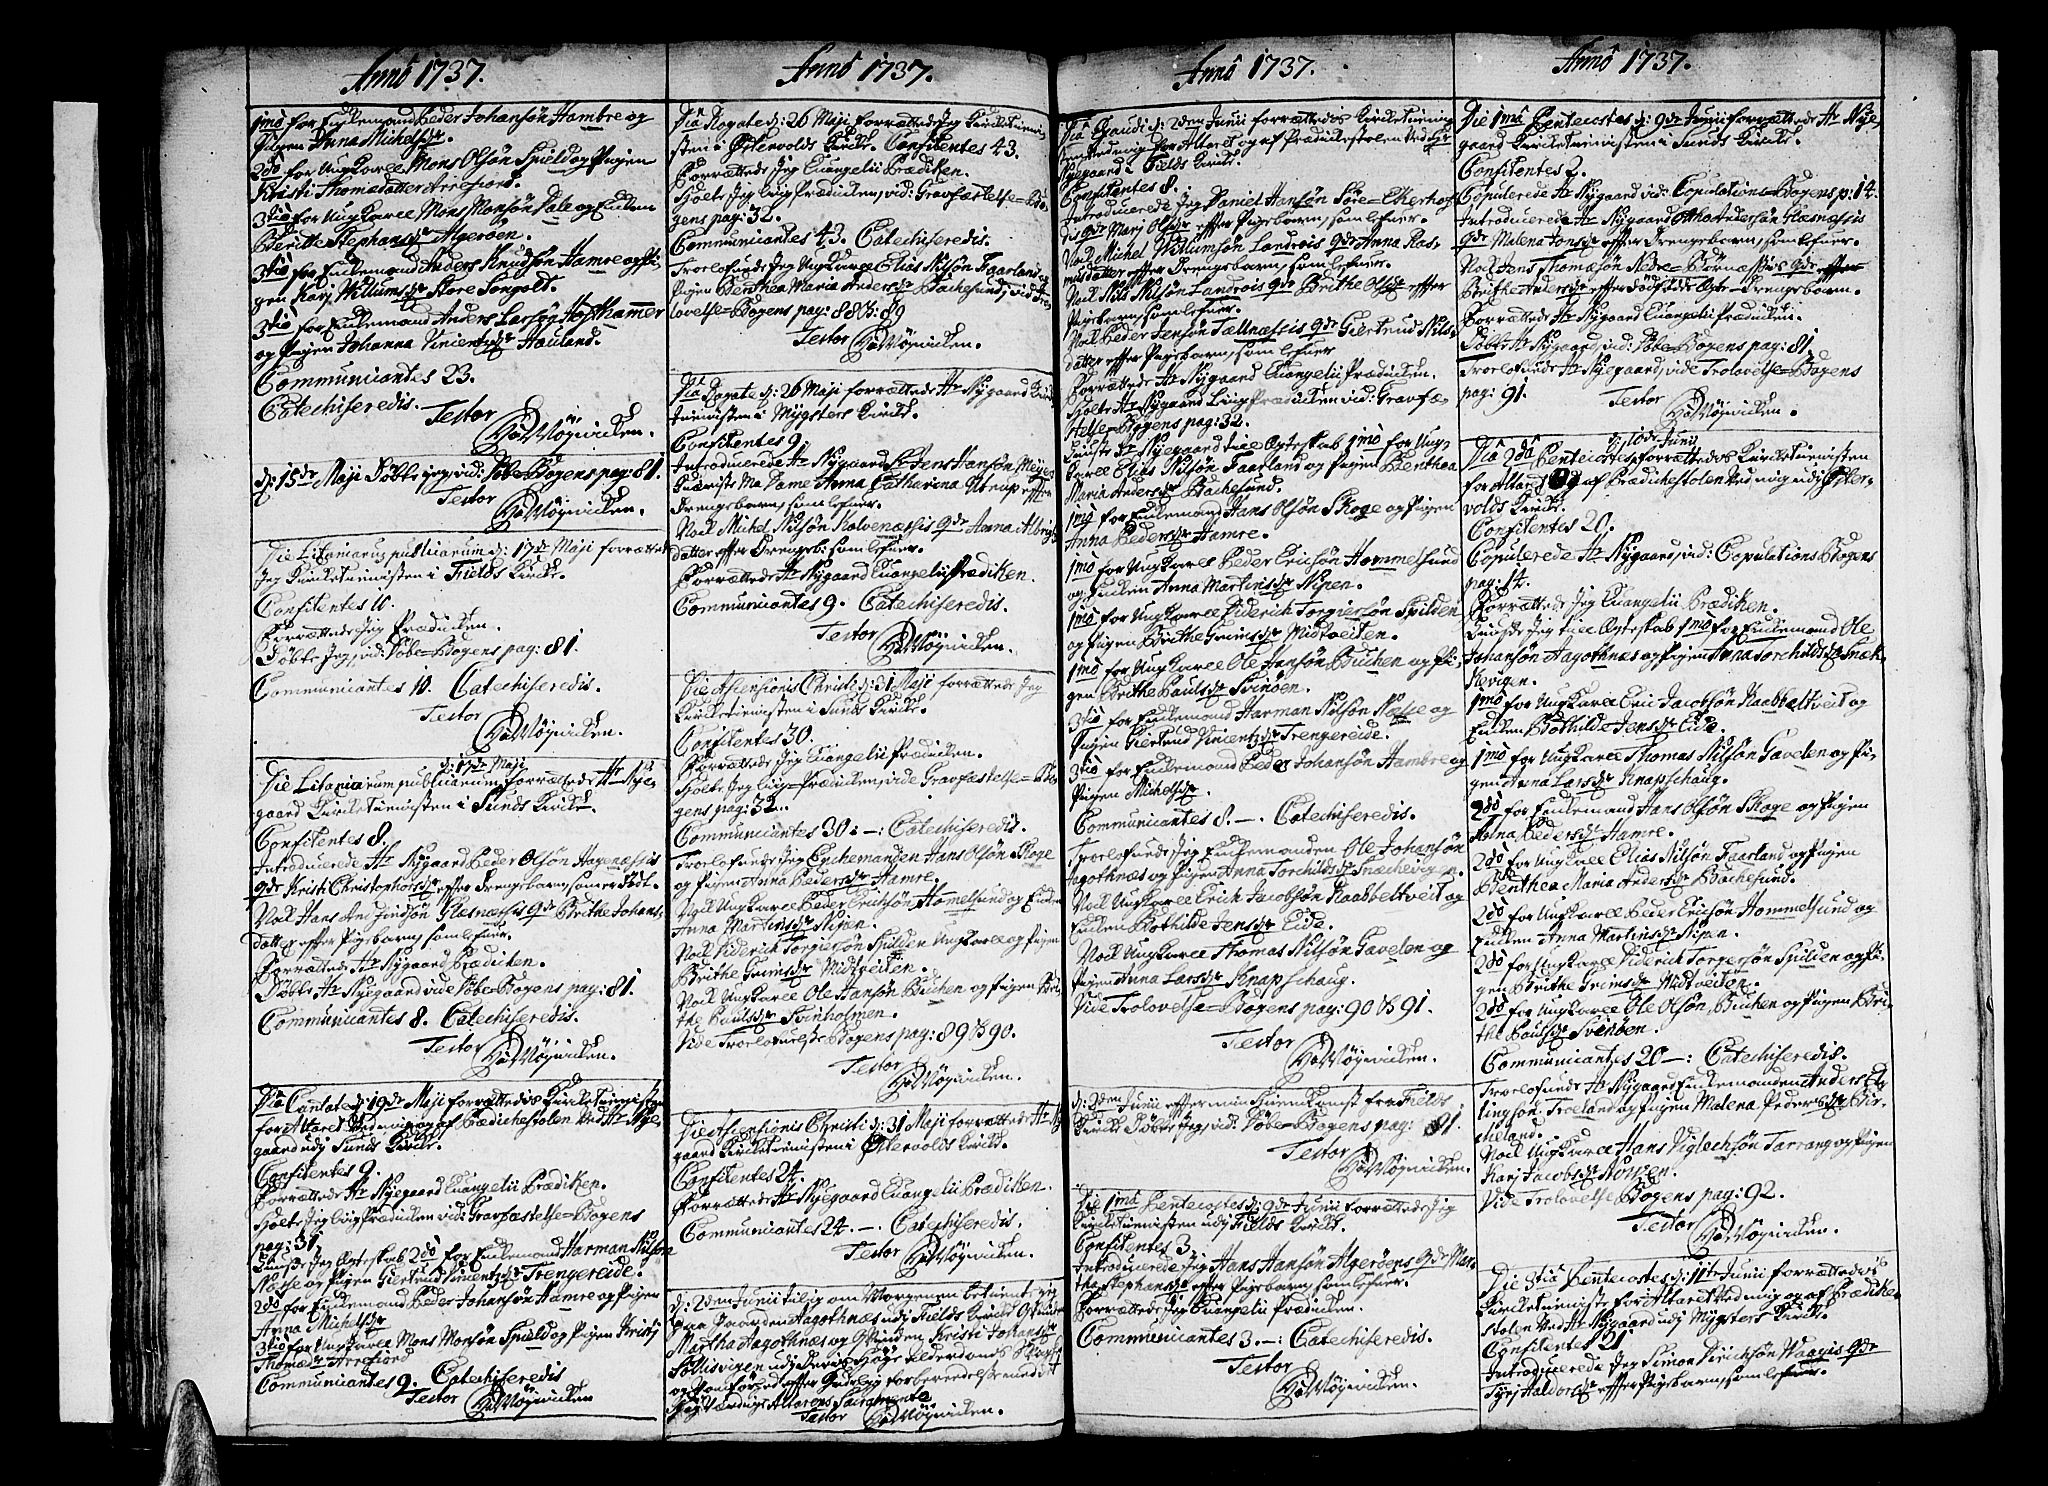 Anno 1737.
1mo for Enkemand Peder Johansøn Hambre og
Pigen Anna Michelsdr.
2do for Ungkarl Mons Olsøn Spield og Pigen
Kristi Thomasdatter Arrefiord.
3tio for Ungkarl Mons Monsøn Vale og Enken
Beritte Stephansdr Algeröen.
3tio for Enkemand Anders Knudsøn Hamre og Pi-
gen Karj Willumsdr Store Songolt.
3tio for Enkemand Anders Larsøn Hofthamer
og Pigen Johanna Vincentzdr Houland.
Communicantes 23.
Catechiseredis.
Testor
Møinichen.
d: 15de Maji Døbte jeg, vid: Døbe-Bogens pag: 81.
Testor
Møinichen.
Die Litaniarum publicarum d: 17de Maji forrættede
Jeg Kirketienisten i Fields Kirke.
Confitentes 10.
Forrættede Jeg Prædicken.
Døbte Jeg, vid: Døbe-Bogens pag: 81.
Communicantes 10. Catechiseredis.
Testor
Møinichen.
d: 17de Maji
Die Litaniarum publicarum forrættede Hr Nye-
gaard Kirketienisten i Sunds Kirke.
Confitentes 8.
Introducerede Hr Nygaard Peder Olsøn Hagenæssis
qde Kristi Christophersdr efter Drengebarn, som er Død.
Noch Hans And Glesnæssis qde Brithe Johans-
datter efter Pigebarn, som lefuer.
Forrættede Hr Nygaard Prædicken.
Døbte Hr Nyegaard vide Døbe-Bogens pag: 81.
Communicantes 8. Catechiseredis.
Testor
Møinichen.
Dca Cantate d: 19de Maji forrættedes Kirketienisten
for Altaret Ved mig og af Prædichestolen Ved Hr Nye-
gaard udj Sunds Kirke.
Confitentes 9.
Forrættede Hr Nyegaard Euangelii Prædicken.
Holte Jeg Liig Prædicken vid: Gravfæstelse-Bogens
pag: 31
Liuste Jeg Egteskab 2do for Enkemand Harman Nilsøn
Nesse og Pigen Giertrud Vincentzdr Trengereide.
2do for Enkemand Peder Johansøn Hamre og Pigen
Anna Michelsdr
3tio for Ungkarl Mons Monsøn Spield og Pigen Kristj
Thomædr Arrefiord
Communicantes 9. Catechiseredis
Testor
Møinichen
Anno 1737.
Dca Rogate d: 26 Maji forrættede Jeg Kirketieni-
sten i Østervolds Kirke. Confitentes 43.
Forrættede Jeg Euangelii Prædiken.
Holte Jeg Liig Prædicken, vid: Gravfæstelse-Bo-
gens pag: 32.
Communicantes 43. Catechiseredis.
Troelofuede Jeg Ungkarl Elias Nilsøn Faarland og
Pigen Benthea Maria Andersdr Bachesund, vid Tro-
lovelse-Bogens pag: 88 & 89
Testor
Møinichen.
Dca Rogate d: 26 Maji forrættede Hr Nygaard Kirke-
tienisten i Mygsters Kirke.
Confitentes 9.
Introducerede Hr Nygaard Sr Jens Hansøn Meyer
Kiæriste Ma Dame Anna Catharina Utrup efter
Drengebarn, som lefuer.
Noch Michel Nilsøn Kolvenæssis qde Anna Albrigts-
datter efter Drengeb: som lefuer.
Forrættede Hr Nygaard Euangelii Prædiken.
Communicantes 9. Catechiseredis.
Testor
Møinichen.
Die Ascensionis Christi d: 31 Maji forrættede Jeg
Kirketienisten i Sunds Kirke.
Confitentes 30.
Forrættede Jeg Euangelii Prædicken.
Holte Jeg Liig-Prædicken, vide Gravfæstelse-Bo-
gens pag: 32.
Communicantes 30:-: Catechiseredis.
Troelofuede Jeg Enckemanden Hans Olsøn Skoge
og Pigen Anna Pedersdr Hamre.
Noch Ungkarl Peder Ericksøn Homelsund og Enken
Anna Martinsdr Nipen.
Noch Diderich Torgiersøn Spilden Ungkarl og Pigen
Brithe Grimsdr Midtveiten.
Noch Ungkarl Ole Hansøn Buchen og Pigen Bri-
the Paulsdr Svinholmen.
Vide Troelofuelse Bogens pag: 89 & 90.
Testor
Møinichen.
Die Ascensionis Christi d: 31 Maji forrættede Hr Ny-
gaard Kirketienisten i Østervolds Kirke.
Confitentes 24.
Forrættede Hr Nyegaard Euangelii Prædiken.
Communicantes 24. -. Catechiseredis.
Testor
Møinichen.
d: 2den Junii tilig om Morgenen betiente jeg
paa Gaarden Aagothnæs udj Fields Kirke
Martha Aagothnæs og Kristi Johansdr
udj deres Høje Alderdoms
og efter Gudelig forberedelse med det
Høyværdige Altarens Sacramente
Testor Møinichen.
Anno 1737.
Dca Exaudi d: 2den Junii forrættedes Kirketieni-
sten Ved mig for Alteret og af Prædichestolen Ved Hr
Nyegaard i Fields Kirke.
Confitentes 8.
Introducerede Jeg Daniel Hansøn Søre-Ekerhof-
dis qde Marj Olsdr efter Pigebarn, som lefuer.
Noch Michel Willumsøn Landrois qde Anna Ras-
musdatter efter Drengebarn, som lefuer.
Noch Nils Nilsøn Landrois qde Brithe Olsdr efter
Pigebarn, som lefuer.
Noch Peder Jensøn Tællnæssis qde Giertrud Nils-
datter efter Pigebarn, som lefuer
Forrættede Hr Nygaard Euangelii Prædicken.
Holte Hr Nygaard Liig Prædicken vid: Gravfæ-
stelse-Bogens pag: 32.
Liuste Hr Nyegaard till Egteskab 1mo for Ung-
karl Elias Nilsøn Faarland og Pigen Benthea
Maria Andersdr Bachesund.
1mo for Enkemand Hans Olsøn Skoge og Pigen
Anna Pedersdr Hamre.
1mo for Ungkarl Peder Ericsøn Hommelsund
og Enken Anna Martinsdr Nipen.
1mo for Ungkarl Diderich Torgiersøn Spilden
og Pigen Brithe Grimsdr Midtveiten.
1mo for Ungkarl Ole Hansøn Buchen og Pi-
gen Brithe Paulsdr Svinøen.
3tio for Enkemand Harman Nilsøn Nesse og
Pigen Giertrud Vincentzdr Trengereide.
3tio for Enkemand Peder Johansøn Hambre og
Pigen Michelsdr.
Communicantes 8. -. Catechiseredis.
Troelofuede Jeg Enkemanden Ole Johansøn
Aagothnæs og Pigen Anna Torchildsdr Snechevigen.
Noch Ungkarl Erich Jacobsøn Raabbeltveit og
Enken Bothilde Jensdr Eide.
Noch Ungkarl Thomas Nilsøn Gavelen og
Pigen Anna Larsdr Knapschaug.
Vide Trolovelse-Bogens pag: 90 & 91.
Testor
Møinichen.
d: 2den Junii efter min Hiemkomst fra Fields
Kirke Døbte Jeg, vid: Døbe-Bogens pag: 81.
Testor
Møinichen.
Die 1ma Pentecostes d: 9de Junii forrættede Jeg
Kirketienisten udj Fields Kirke.
Confitentes 3.
Introducerede Jeg Hans Hansøn Algerøens qde Mar-
tha Stephansdr efter Pigebarn, som lefuer.
Forrættede Jeg Euangelii Prædicken.
Communicantes 3. -: Catechiseredis.
Testor
Møinichen.
Anno 1737.
Die 1ma Pentecostes d: 9de Junii forrættede Hr Nye-
gaard Kirketienisten i Sunds Kirke.
Confitentes 2.
Copulerede Hr Nygaard vid: Copulations-Bogens p: 14.
Introducerede Hr Nygaard Otho Andersøn Glesnæssis
qde Malena Jonsdr efter Drengebarn, som lefuer.
Noch Jens Thomæsøn Nedre-Børnæssis qde efter
Brithe Andersdr efter dødfødde Egte-Drengebarn.
Forrættede Hr Nygaard Euangelii Prædicken.
Døbte Hr Nygaard, vid: Døbe-Bogens pag: 81.
Troelofuede Hr Nyegaard, vide Trolovelse-Bogens
pag: 91. Testor
Møinichen.
d: 10de Junij
Dca 2da Pentecostes forrættedes Kirketienisten
for Altaret og af Prædichestolen Ved mig udj Øster-
volds Kirke.
Confitentes 20.
Copulerede Hr Nygaard, vid: Copulations Bogens
pag: 14.
Forrættede Jeg Euangelii Prædicken.
Liuste Jeg till Egteskab 1mo for Enkemand Ole
Johansøn Aagothnæs og Pigen Anna Torchildsdr Snæk-
kevigen.
1mo for Ungkarl Eric Jacobsøn Raabbeltveit og
Enken Bothilde Jensdr Eide.
1mo for Ungkarl Thomas Nilsøn Gavelen og Pi-
gen Anna Larsdr Knapschaug.
2do for Enkemand Hans Olsøn Skoge og Pigen
Anna Pedersdr Hamre.
2do for Ungkarl Elias Nilsøn Faarland og Pigen
Benthea Maria Andersdr Bachesund.
2do for Ungkarl Peder Ericsøn Hommelsund og
Enken Anna Martinsdr Nipen.
2do for Ungkarl Diderich Torgersøn Spilden og Pi-
gen Brithe Grimsdr Midtveiten.
2do for Ungkarl Ole Olsøn, Buchen og Pigen Bri-
the Paulsdr Svinöen.
Communicantes 20 -: Catechiseredis.
Troelofuede Hr Nygaard Enkemanden Anders El-
lingsøn Troeland og Pigen Malena Pedersdr Bir-
cheland.
Noch Ungkarl Hans Viglechsøn Tarrang og Pigen
Karj Jacobsdr Norsen.
Vide Trolovelse Bogens pag: 92.
Testor
Møinichen.
Die 3tia Pentecostes d: 11te Junii forrættedes
Kirketieniste for Altaret Ved mig og af Prædike-
stolen Ved Hr Nygaard udj Mygsters Kirke.
Confitentes 21
Introducerede Jeg Simon Dirichsøn Waagis qde
Tyrj Haldorsdr efter Pigebarn, som lefuer.